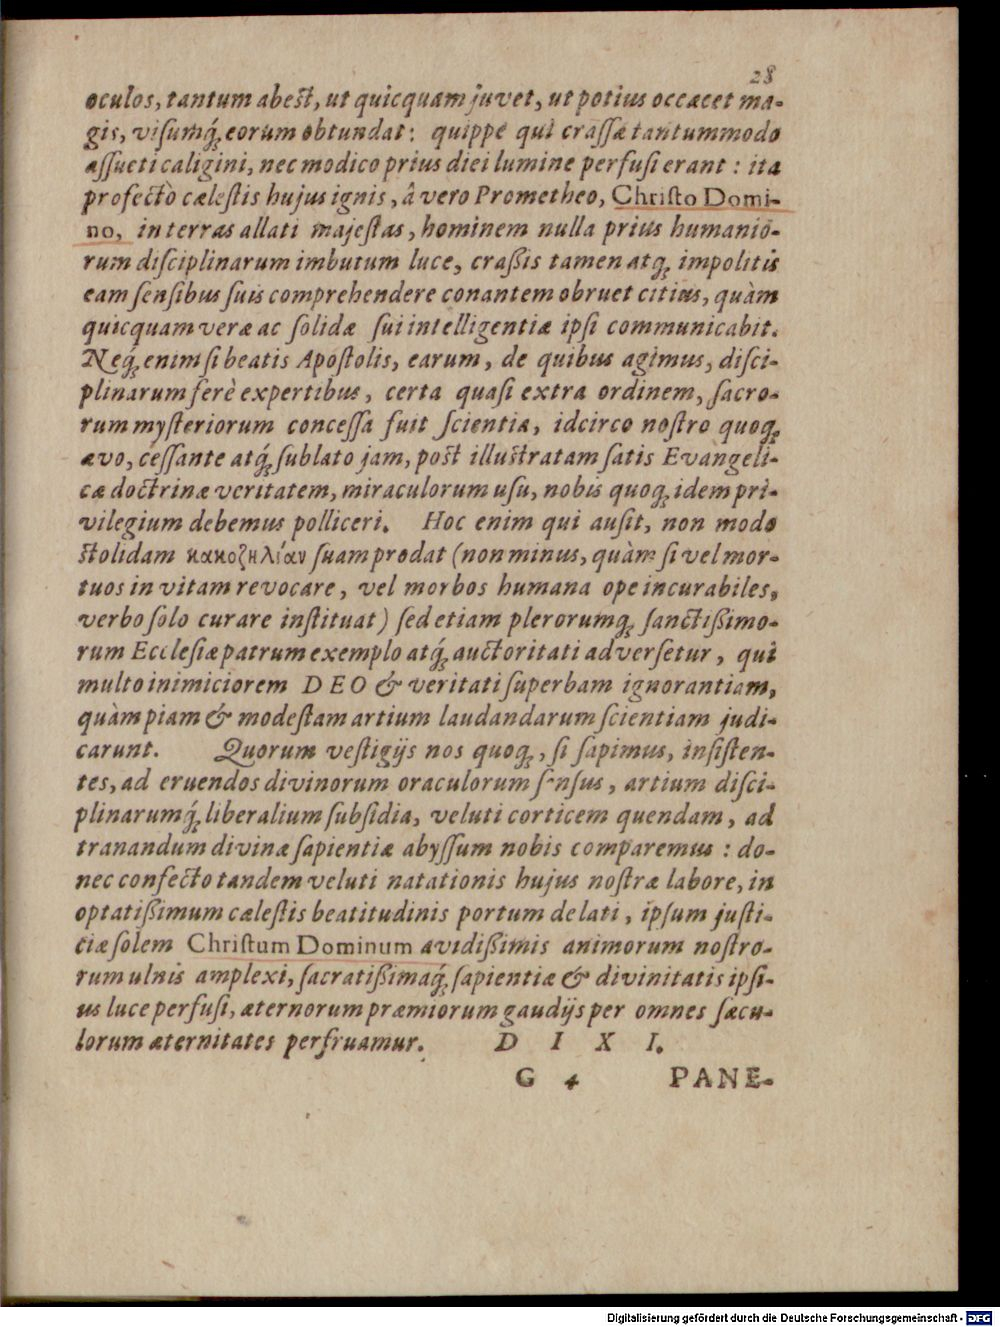 28
oculos, tantum abest, ut quicquam juvet, ut potius occæcet ma-
gis, visumq́; eorum obtundat: quippe qui crassæ tantummodo
assueti caligini, nec modico prius diei lumine perfusi erant: ita
profectò cælestis hujus ignis, â vero Prometheo, Christo Domi-
no, in terras allati majestas, hominem nulla prius humanio-
rum disciplinarum imbutum luce, craßis tamen atq; impolitis
eam sensibus suis comprehendere conantem obruet citius, quàm
quicquam veræ ac solidæ sui intelligentiæ ipsi communicabit.
Neq́; enim si beatis Apostolis, earum, de quibus agimus, disci-
plinarum ferè expertibus, certa quasi extra ordinem, sacro-
rum mysteriorum concessa fuit scientia, idcirco nostro quoq;
ævo, cessante atq́; sublato jam, post illustratam satis Evangeli-
cæ doctrinæ veritatem, miraculorum usu, nobis quoq; idem pri-
vilegium debemus polliceri. Hoc enim qui ausit, non modo
stolidam κακοζηλίαν suam prodat (non minus, quàm si vel mor-
tuos in vitam revocare, vel morbos humana ope incurabiles,
verbo solo curare instituat) sed etiam plerorumq; sanctißimo-
rum Ecclesiæ patrum exemplo atq́; auctoritati adversetur, qui
multo inimiciorem DEO & veritati superbam ignorantiam,
quàm piam & modestam artium laudandarum scientiam judi-
carunt. Quorum vestigijs nos quoq;, si sapimus, insisten-
tes, ad eruendos divinorum oraculorum sensus, artium disci-
plinarumq́; liberalium subsidia, veluti corticem quendam, ad
tranandum divinæ sapientiæ abyssum nobis comparemus: do-
nec confecto tandem veluti natationis hujus nostræ labore, in
optatißimum cælestis beatitudinis portum delati, ipsum justi-
ciæ solem Christum Dominum avidißimis animorum nostro-
rum ulnis amplexi, sacratißimaq́; sapientiæ & divinitatis ipsi-
us luce perfusi, æternorum præmiorum gaudijs per omnes sæcu-
lorum æternitates perfruamur. D I X I.
G 4 PANE-
Digitalisierung gefördert durch die Deutsche Forschungsgemeinschaft - DFG